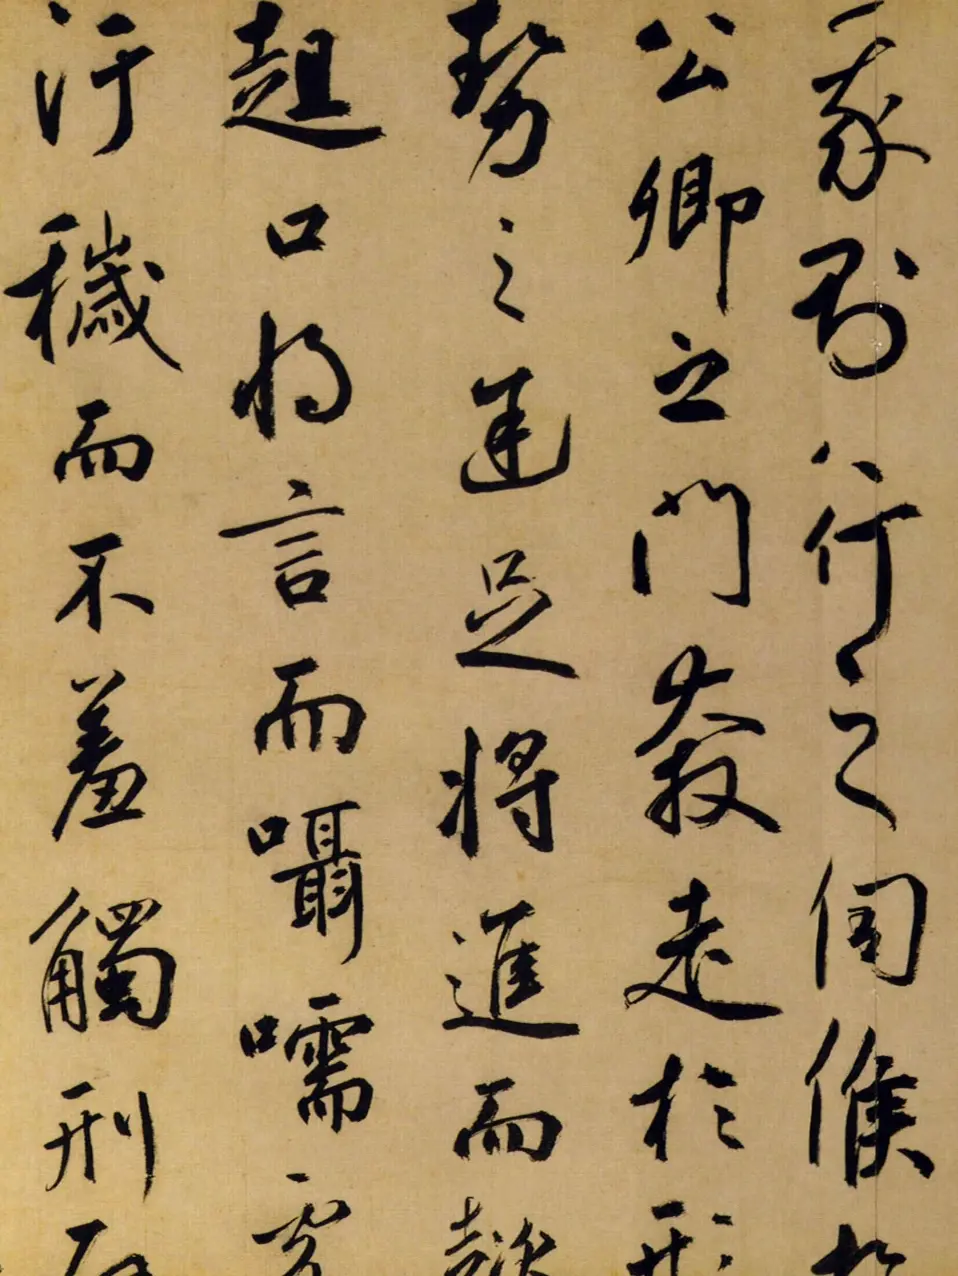 我則行之伺候於
公卿之門奔走於形
勢之途足將進而趑
趄口將言而囁嚅處
汙穢而不羞觸刑